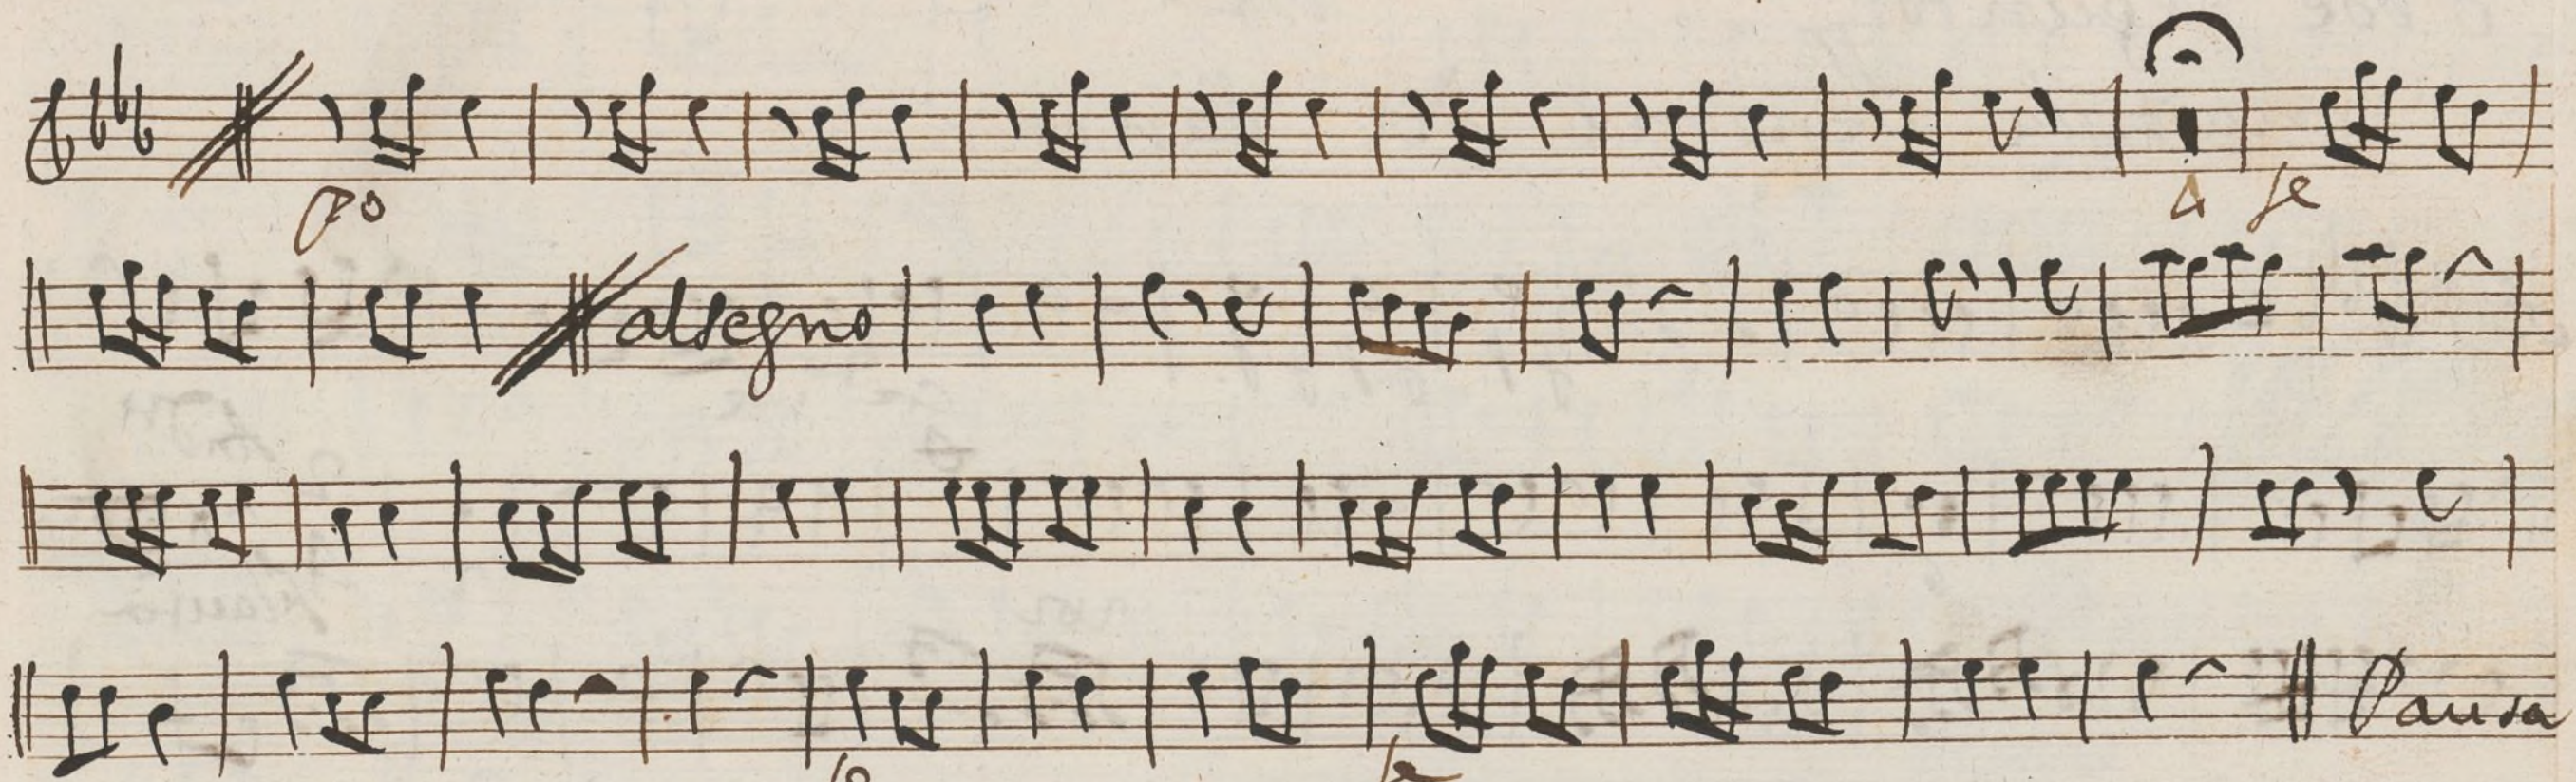 po 4 fe
al segno
fe
Pausa